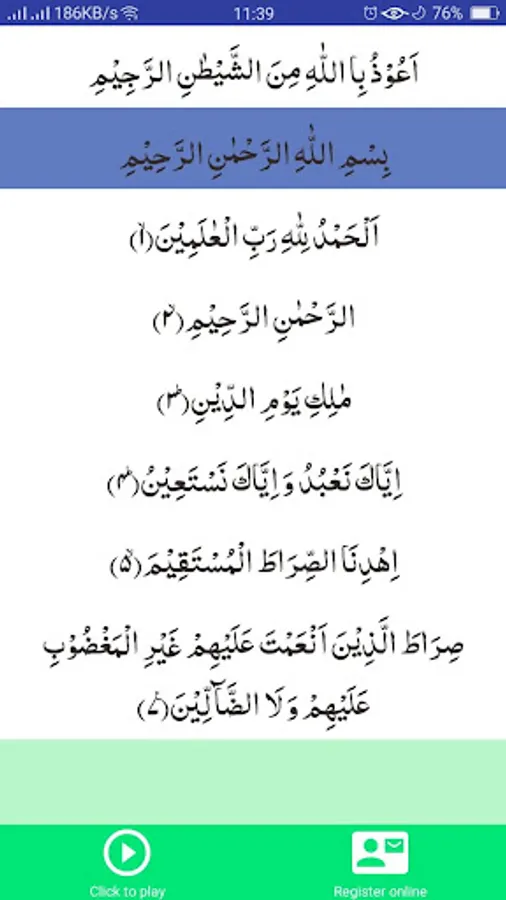 186KB/s 11:39 76%
اَعُوْذُ بِاَ اللّٰهِ مِنَ الشَّيْطٰنِ الرَّجِيْمِ
بِسْمِ اللّٰهِ الرَّحْمٰنِ الرَّحِيْمِ
اَلْحَمْدُ لِلّٰهِ رَبِّ الْعٰلَمِيْنَۙ(۱)
الرَّحْمٰنِ الرَّحِيْمِۙ(۲)
مٰلِكِ يَوْمِ الدِّيْنِؕ(۳)
اِيَّاكَ نَعْبُدُ وَ اِيَّاكَ نَسْتَعِيْنُؕ(۴)
اِهْدِنَا الصِّرَاطَ الْمُسْتَقِيْمَۙ(۵)
صِرَاطَ الَّذِيْنَ اَنْعَمْتَ عَلَيْهِمْ غَيْرِ الْمَغْضُوْبِ
عَلَيْهِمْ وَ لَا الضَّآلِّيْنَ۠(۷)
Click to play Register online